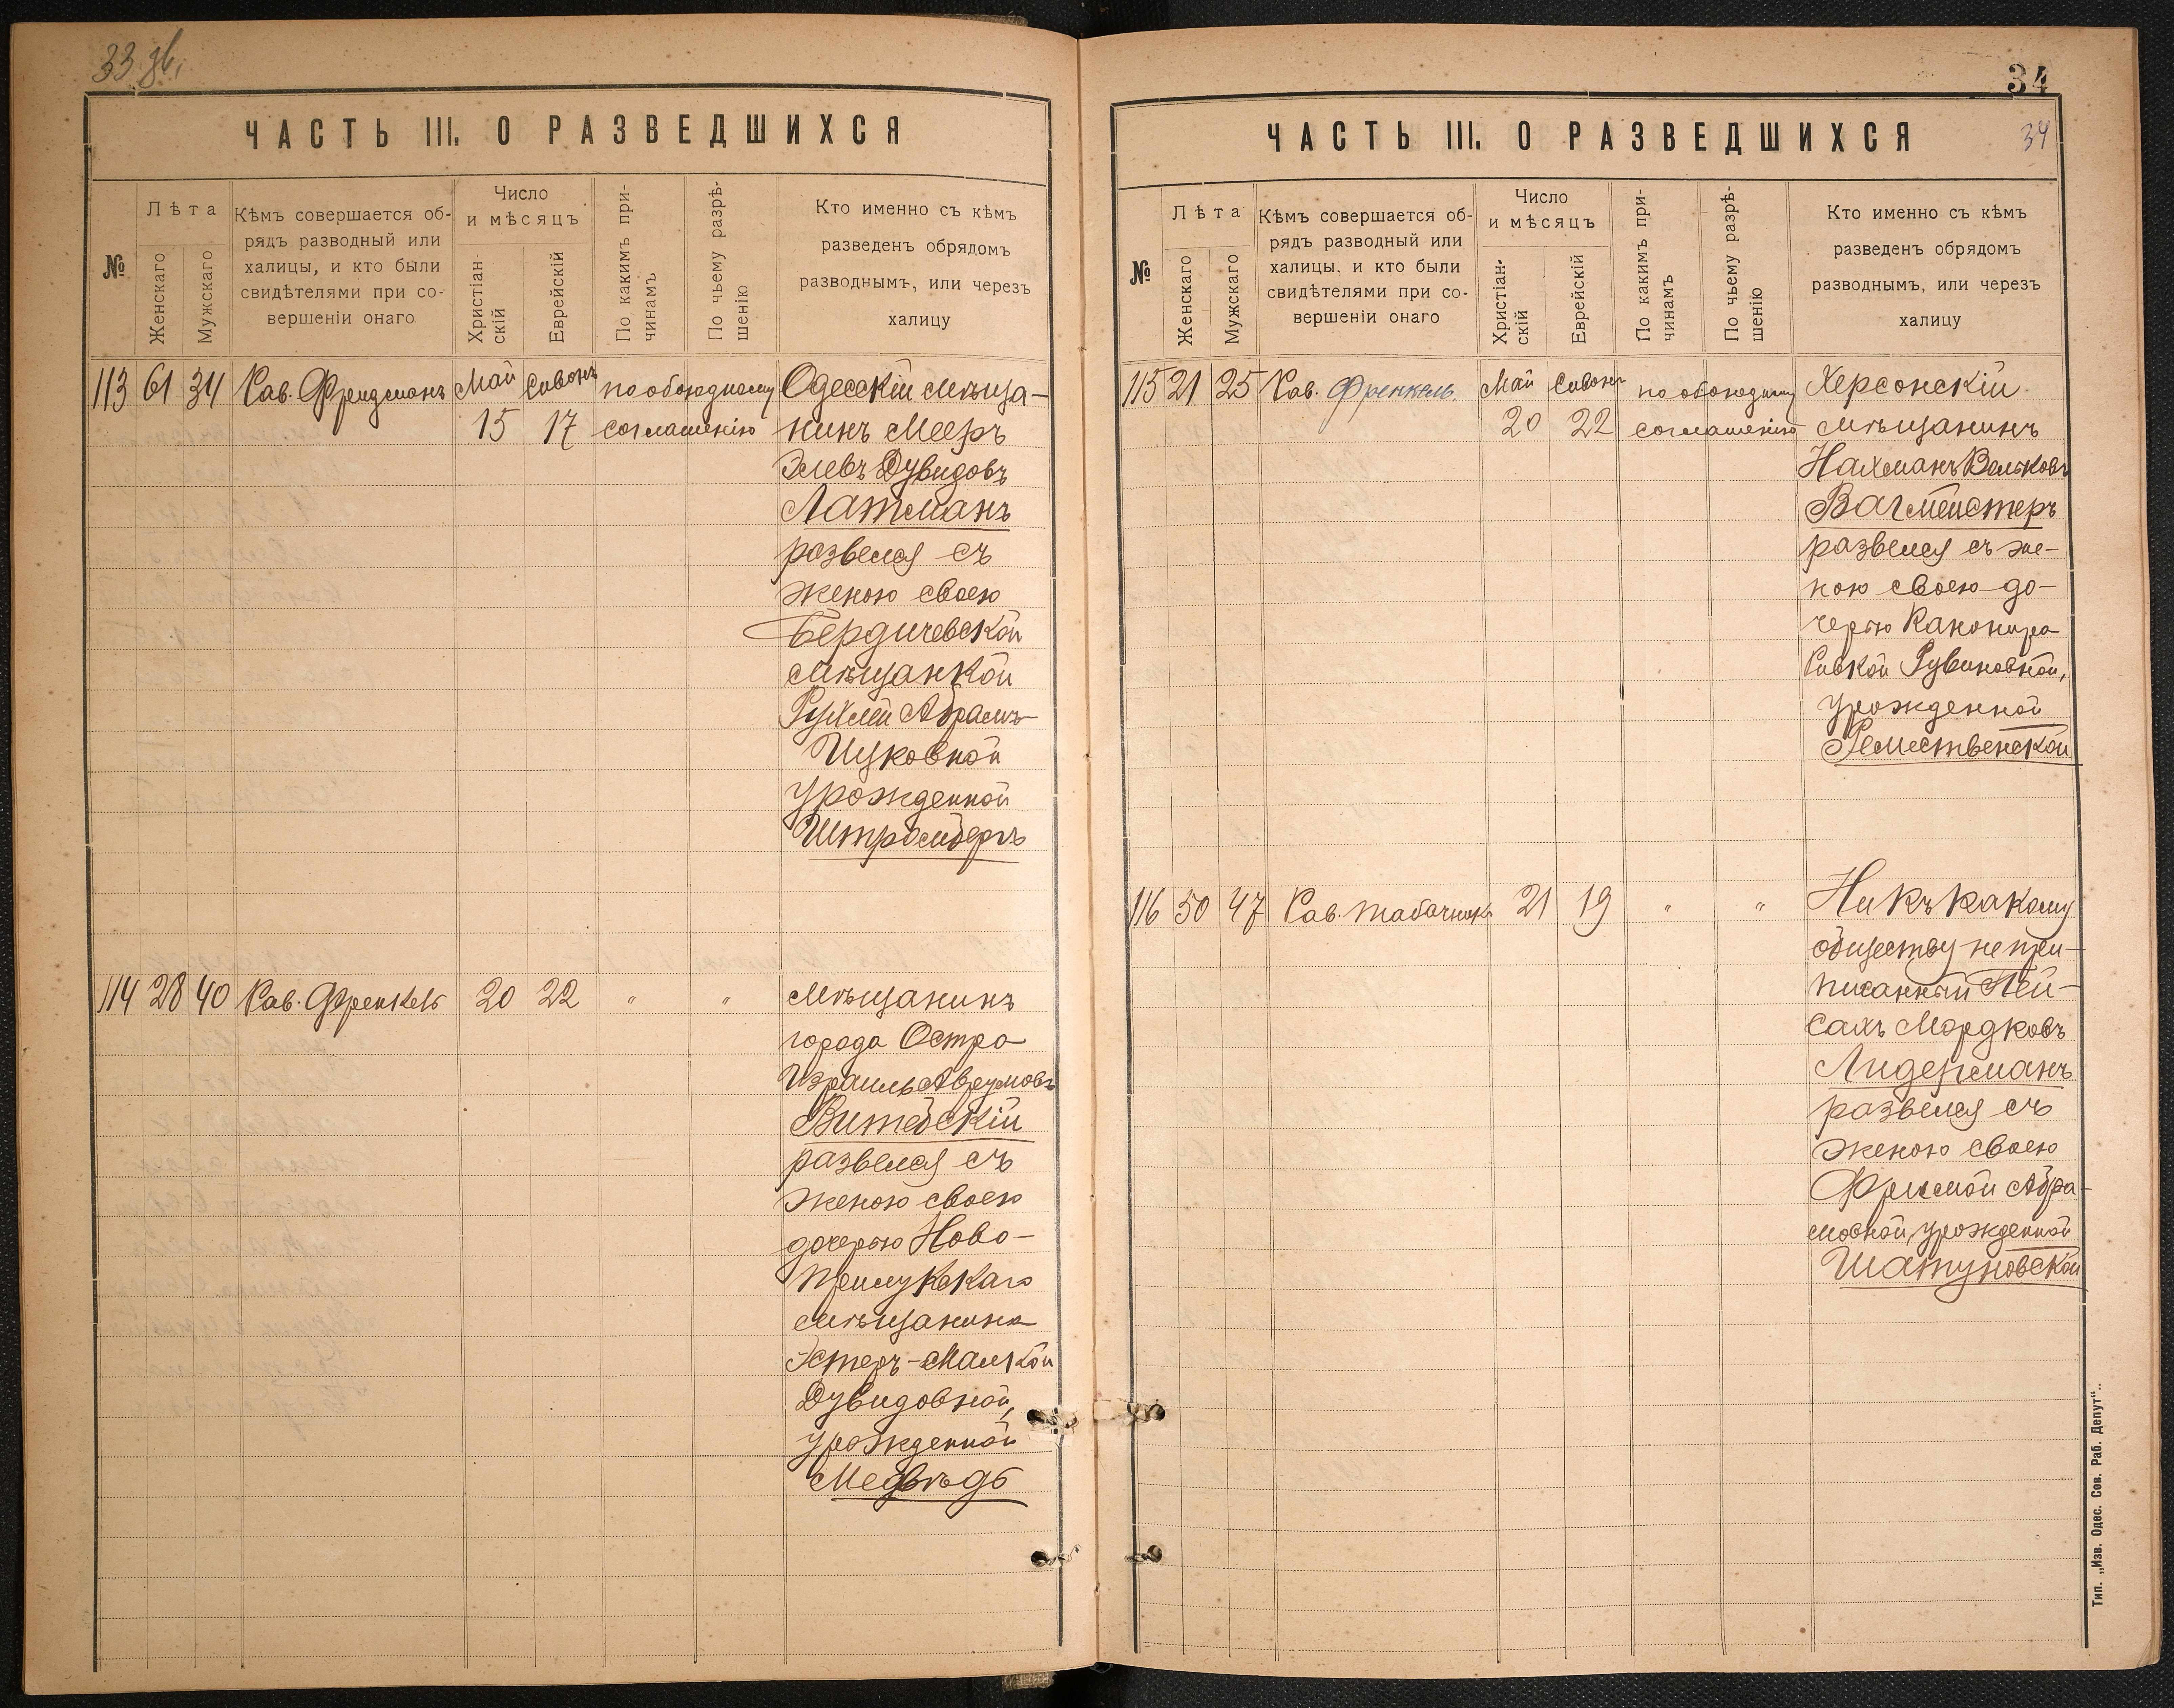 33 зв.
ЧАСТЬ III. О РАЗВЕДШИХСЯ
№
Лѣта
Женскаго
Мужскаго
Кѣмъ совершается об-
рядъ разводный или
халицы, и кто были
свидѣтелями при со-
вершеніи онаго
Число
и мѣсяцъ
Христіан-
скій
Еврейскій
По какимъ при-
чинамъ
По чьему разрѣ-
шенію
Кто именно съ кѣмъ
разведенъ обрядомъ
разводнымъ, или черезъ
халицу
113 61 34 Рав. Фридманъ Май Сивонъ по обоюдному Одесскій мѣща-
15 17 соглашенію нинъ Мееръ
Элевъ Дувидовъ
Латманъ
развелся съ
женою своею
Бердичевской
мѣщанкой
Рухлей Абрамъ-
Ицковной
урожденной
Штромбергъ
114 28 40 Рав. Френкель 20 22 " " Мѣщанинъ
города Остра
Израиль Аврумовъ
Витебскій
развелся съ
женою своею
дочерью Ново-
прилукскаго
мѣщанина
Эстеръ-Малкой
Дувидовной,
урожденной
Медвѣдь
34
ЧАСТЬ III. О РАЗВЕДШИХСЯ
34
№
Лѣта
Женскаго
Мужскаго
Кѣмъ совершается об-
рядъ разводный или
халицы, и кто были
свидѣтелями при со-
вершеніи онаго
Число
и мѣсяцъ
Христіан-
скій
Еврейскій
По какимъ при-
чинамъ
По чьему разрѣ-
шенію
Кто именно съ кѣмъ
разведенъ обрядомъ
разводнымъ, или черезъ
халицу
115 21 25 Рав. Френкель. Май Сивонъ по обоюдному Херсонскій
20 22 соглашенію мѣщанинъ
Нахманъ Вольковъ
Вагмейстеръ
развелся съ же-
ною своею до-
черью Канонира
Ривкой Рувиновной,
урожденной
Релмественской
116 50 47 Рав. Табачникъ 21 19 " " Ни къ какому
обществу не при-
писанный Пей-
сахъ Мордковъ
Лидерманъ
развелся съ
женою своею
Фримой Абра-
мовной, урожденной
Шатуновской
Тип. „Изв. Одес. Сов. Раб. Депут“.